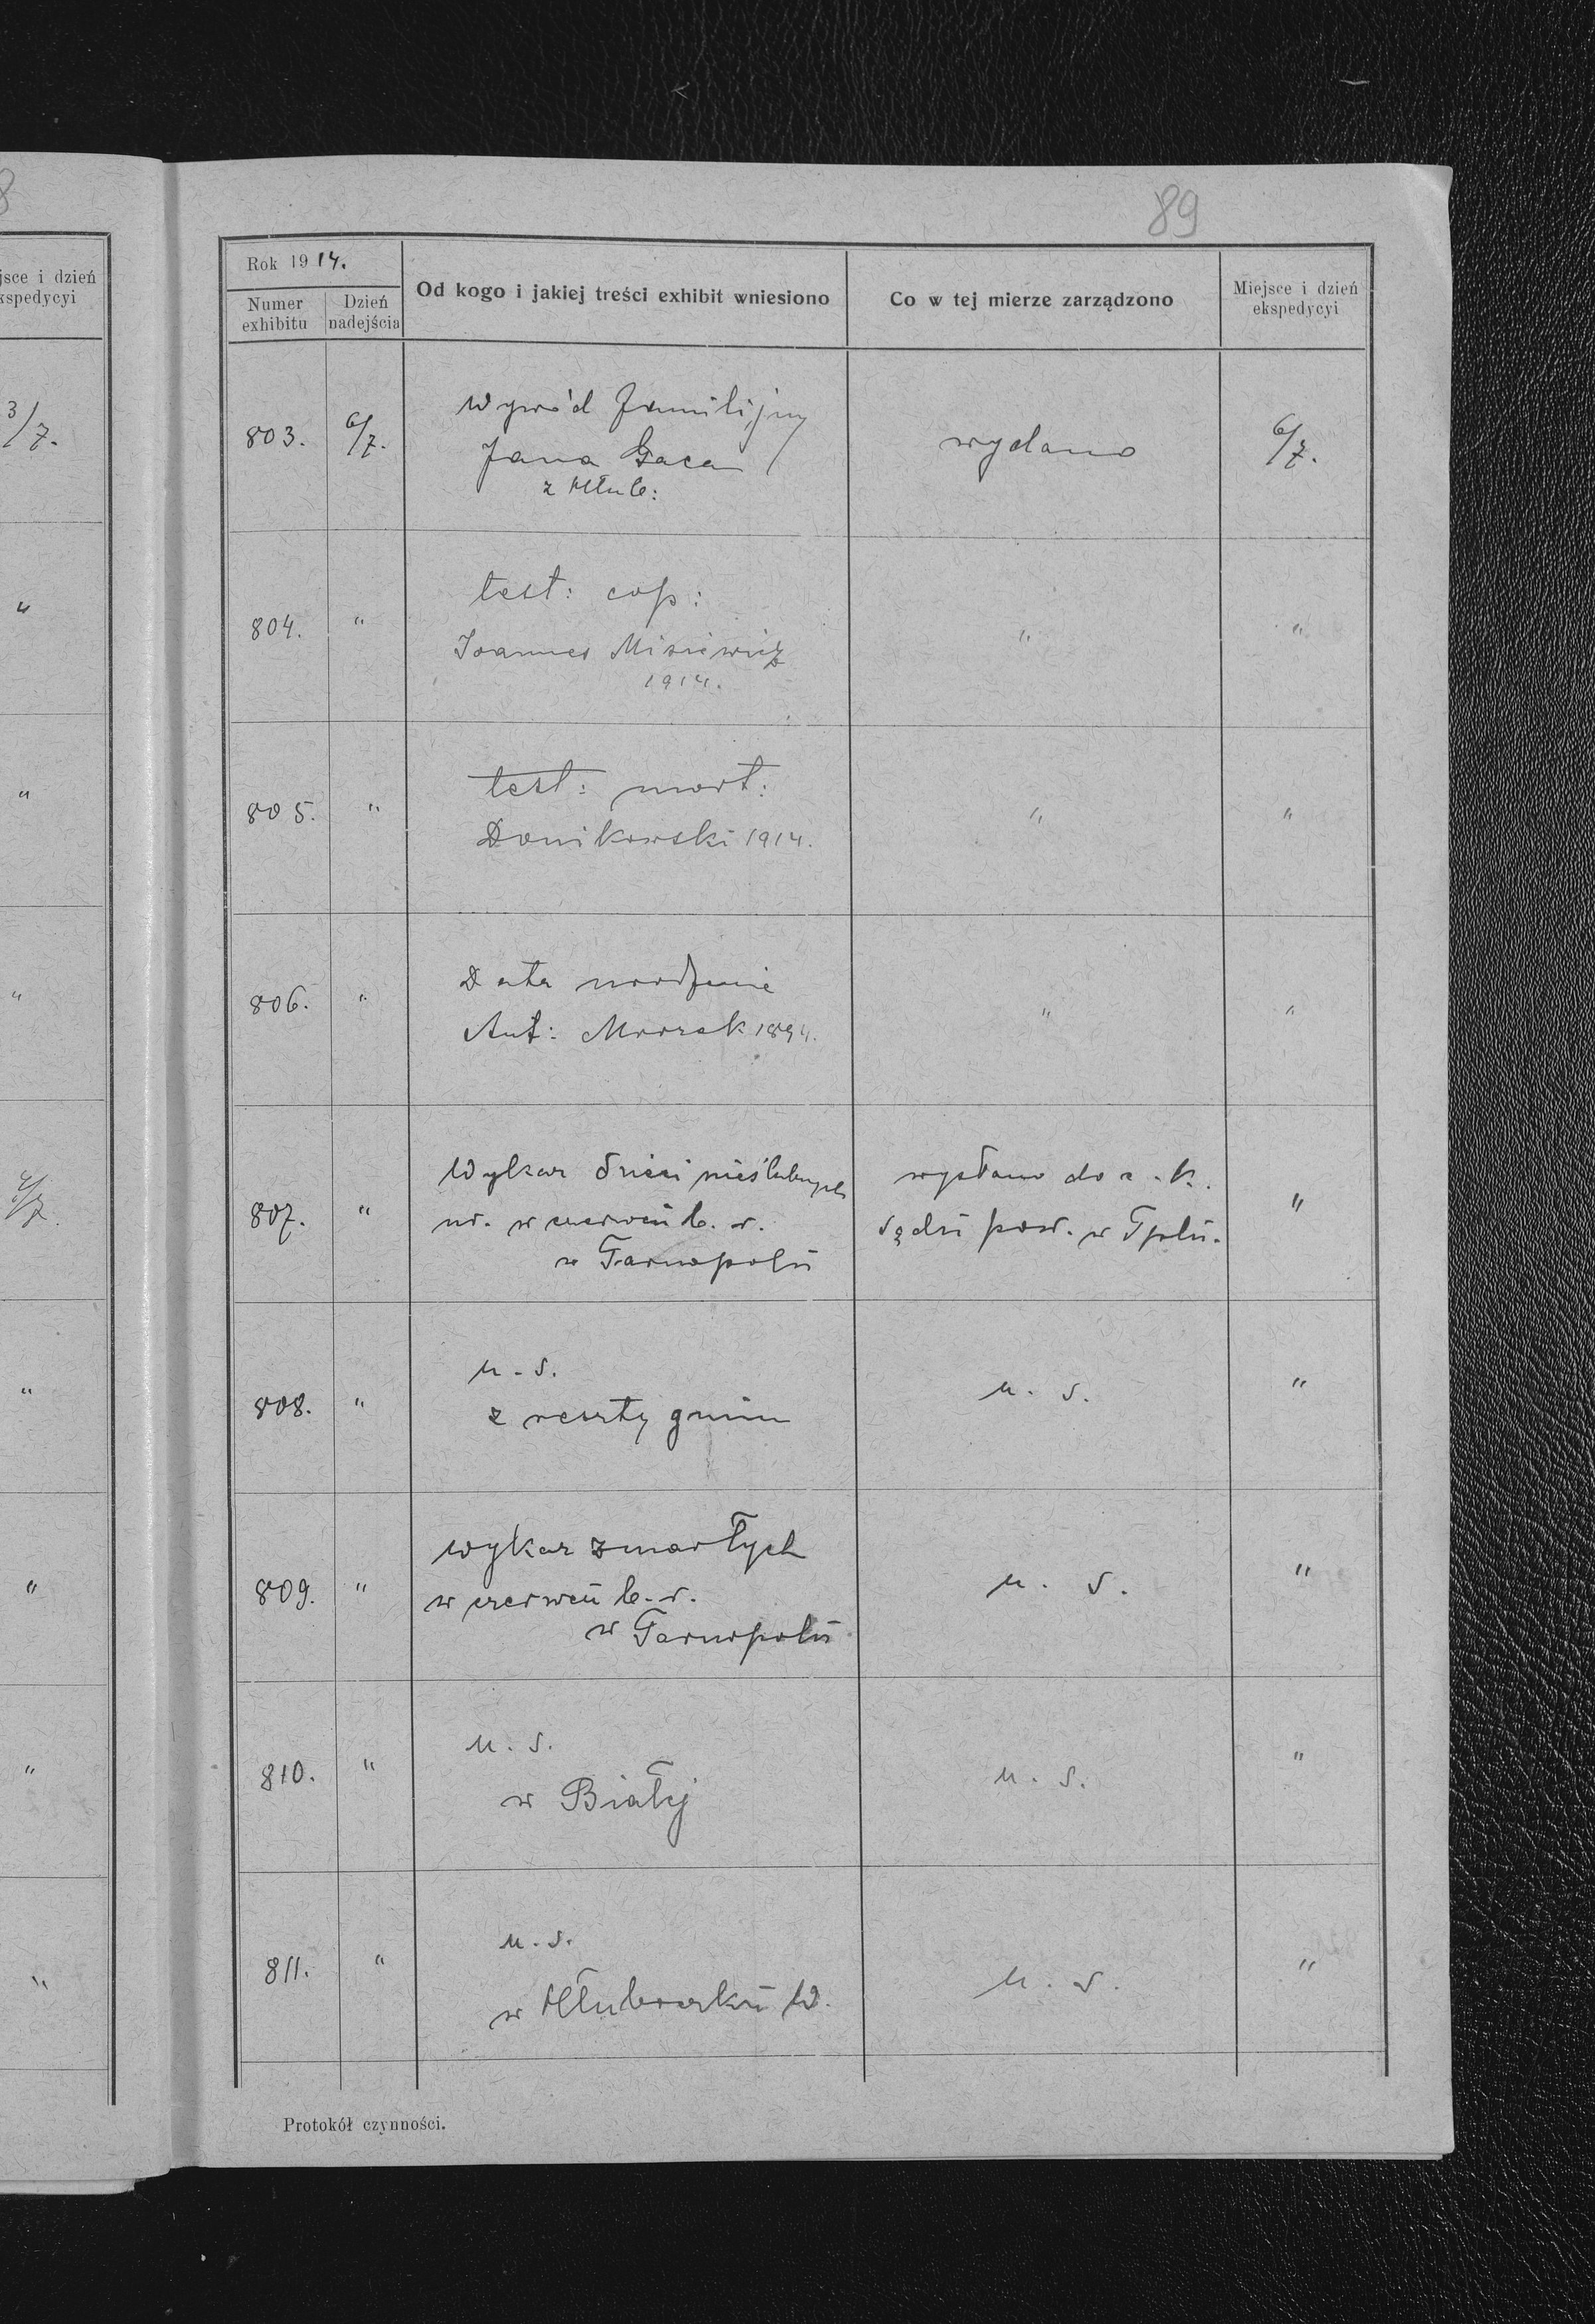 8
jsce i dzień
kspedycyi
3/7.
"
"
"
4/7.
"
"
"
"
89
Rok 1914.
Numer exhibitu
Dzień nadejścia
Od kogo i jakiej treści exhibit wniesiono
Co w tej mierze zarządzono
Miejsce i dzień ekspedycyi
803. 6/7. Wywód familijny wydano 6/7.
Jana Gaca
z Hłub:
804. " test: cop: " "
Joannes Misiewicz
1914.
805. " test: mort: " "
Donikowski 1914.
806. " Data urodzenia " "
Ant: Mrozek 1894.
807. " Wykaz dzieci nieślubnych wysłano do c. k. "
ur. w czerwcu b. r. sądu pow. w Tplu.
w Tarnopolu
808. " u. s. u. s. "
z reszty gmin
809. " wykaz zmarłych u. s. "
w czerwcu b. r.
w Tarnopolu
810. " u. s. u. s. "
w Białej
811. " u. s. u. s. "
w Hłuboczku W.
Protokół czynności.